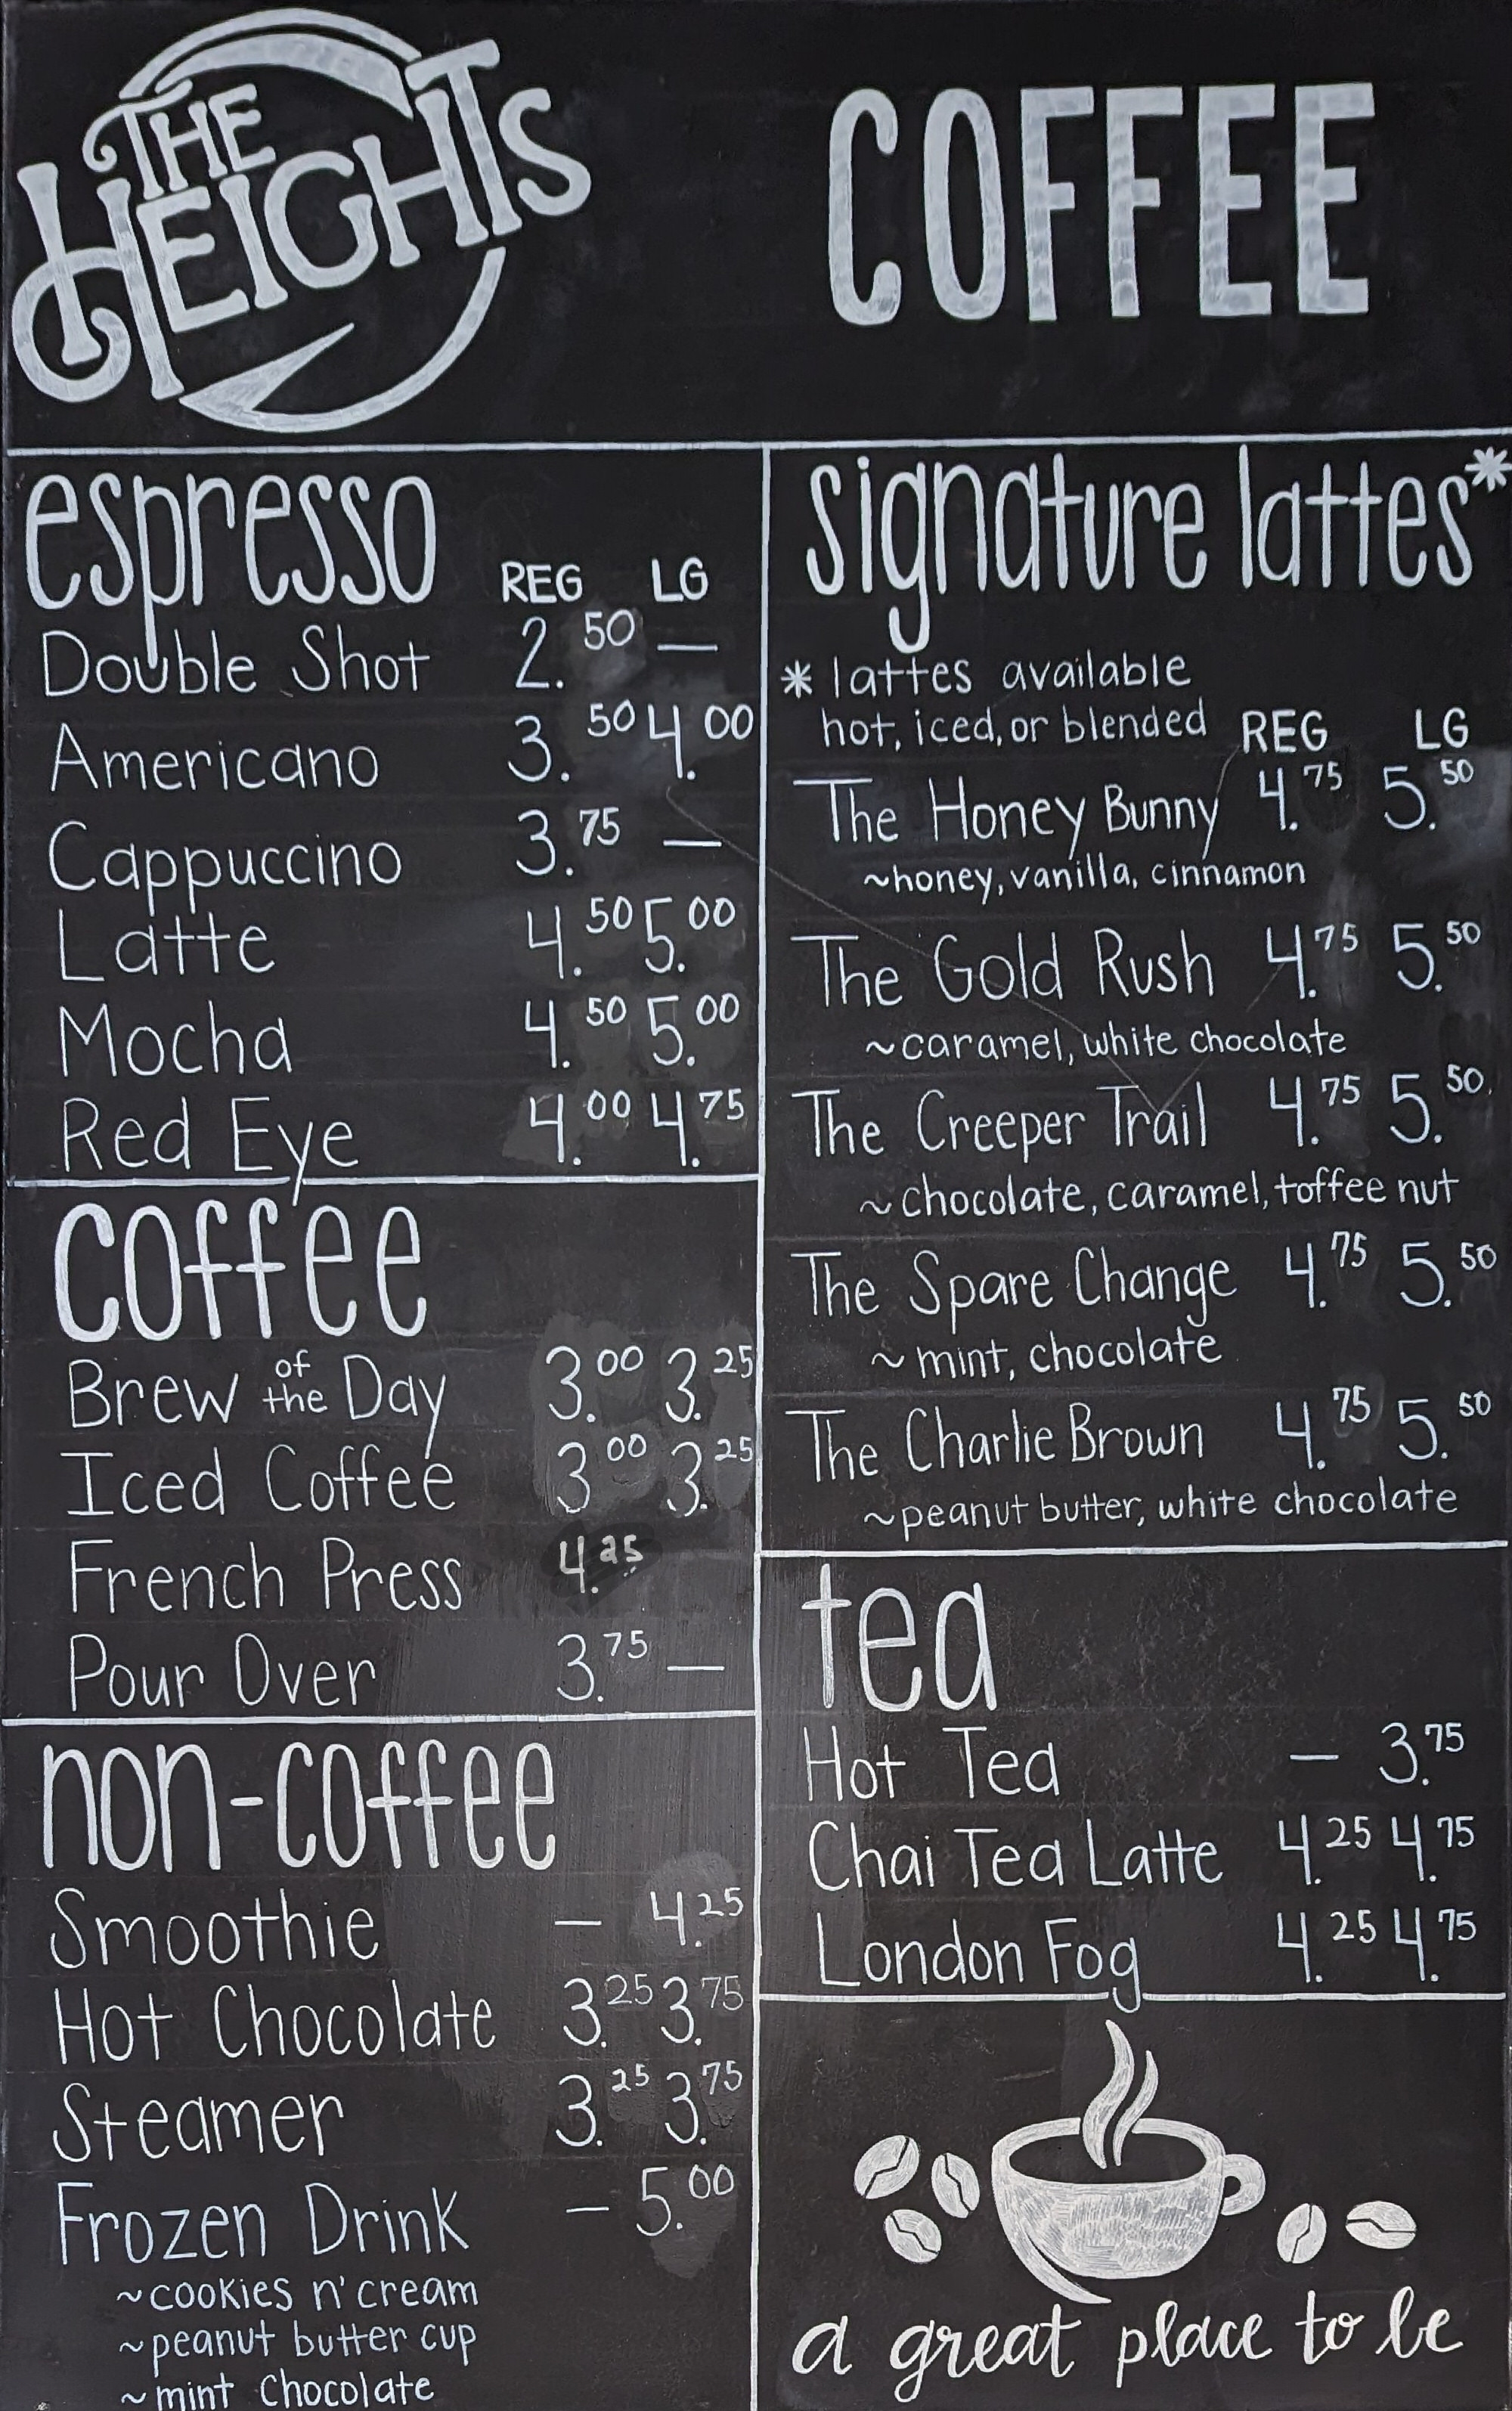 THE
HEIGHTS
COFFEE
espresso REG LG
Double Shot 2.50 —
Americano 3.50 4.00
Cappuccino 3.75 —
Latte 4.50 5.00
Mocha 4.50 5.00
Red Eye 4.00 4.75
coffee
Brew of the Day 3.00 3.25
Iced Coffee 3.00 3.25
French Press 4.25
Pour Over 3.75 —
non-coffee
Smoothie — 4.25
Hot Chocolate 3.25 3.75
Steamer 3.25 3.75
Frozen Drink — 5.00
~cookies n' cream
~peanut butter cup
~mint chocolate
signature lattes*
* lattes available
hot, iced, or blended REG LG
The Honey Bunny 4.75 5.50
~honey, vanilla, cinnamon
The Gold Rush 4.75 5.50
~caramel, white chocolate
The Creeper Trail 4.75 5.50
~chocolate, caramel, toffee nut
The Spare Change 4.75 5.50
~mint, chocolate
The Charlie Brown 4.75 5.50
~peanut butter, white chocolate
tea
Hot Tea — 3.75
Chai Tea Latte 4.25 4.75
London Fog 4.25 4.75
a great place to be